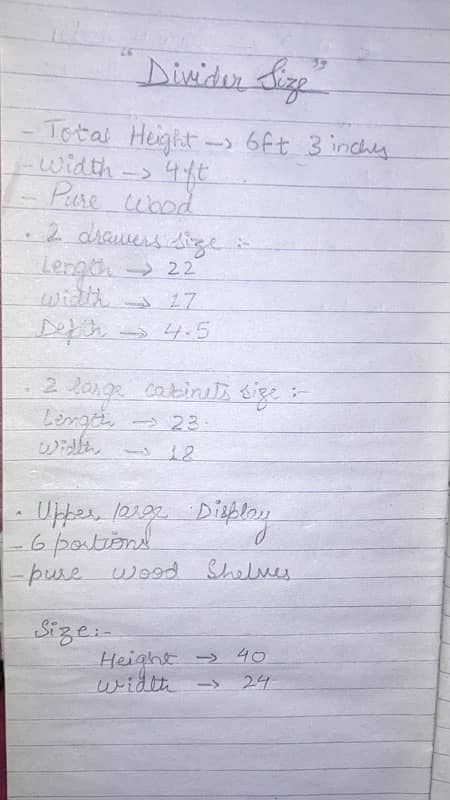 "Divider Size"
- Total Height → 6ft 3 inches
- Width → 4ft
- Pure Wood
• 2 drawers size :-
Length → 22
Width → 17
Depth → 4.5
• 2 large cabinets size :-
Length → 23.
Width → 18
• Upper large Display
- 6 portions
- pure wood Shelves
Size:-
Height → 40
Width → 24